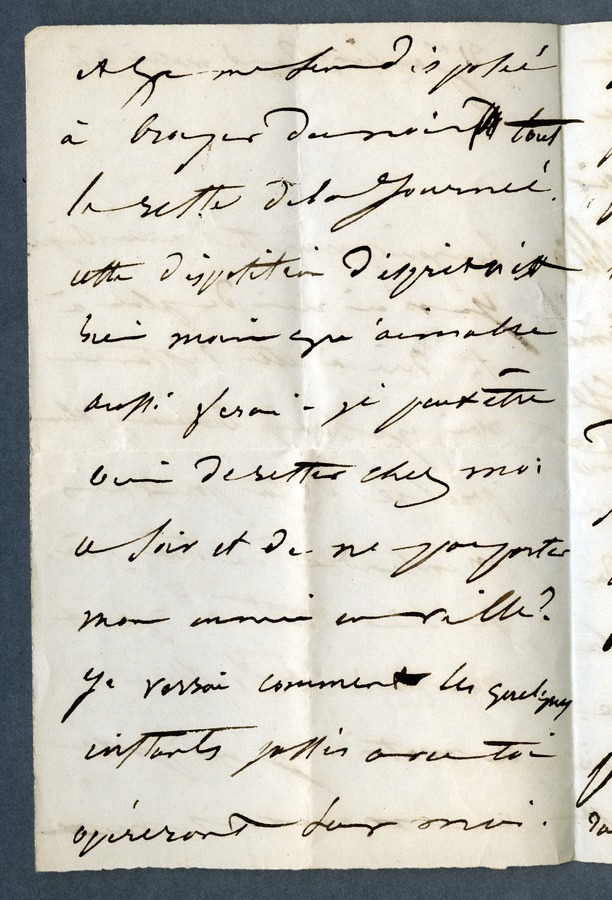 et je me sens disposé
à broyer du noir tout
le reste de la Journée.
cette disposition d'esprit n'est
rien moins qu'aimable
aussi ferai-je peut être
bien de rester chez moi
ce soir et de ne pas porter
mon ennui en ville?
Je verrai comment les quelques
instants passés avec toi
opéreront sur moi.